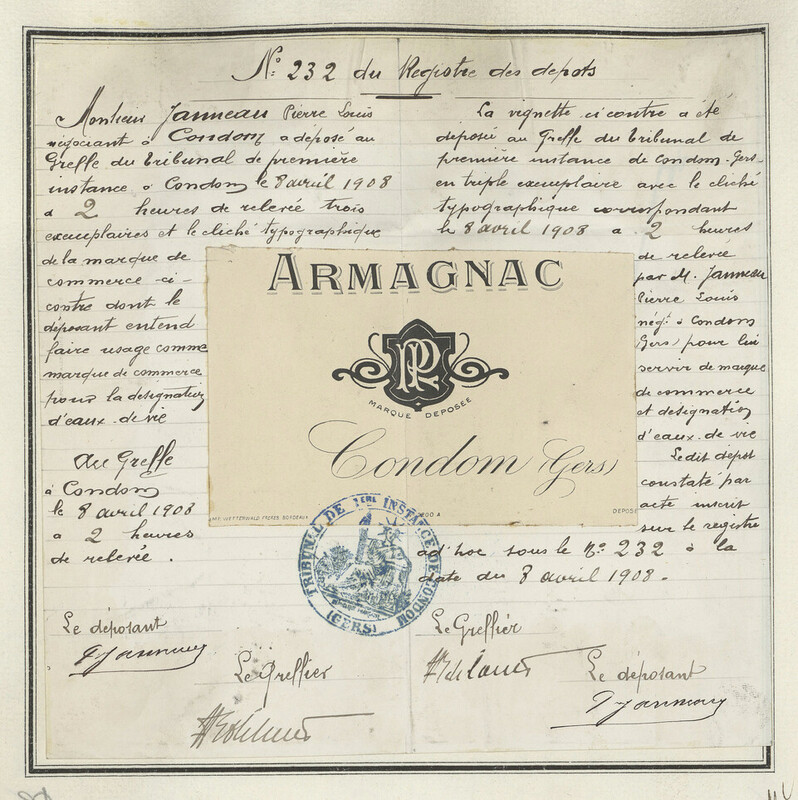 N°: 232 du Registre des dépots
Monsieur Janneau Pierre Louis
négociant à Condom a déposé au
Greffe du tribunal de première
instance à Condom le 8 avril 1908
à 2 heures de relevée trois
exemplaires et le cliché typographique
de la marque de
commerce ci-
contre dont le
déposant entend
faire usage comme
marque de commerce
pour la désignation
d'eaux de vie
Au Greffe
à Condom
le 8 avril 1908
à 2 heures
de relevée.
Le déposant
PJanneau
Le Greffier
La vignette ci contre a été
déposée au Greffe du Tribunal de
première instance de Condom-Gers-
en triple exemplaire avec le cliché
typographique correspondant
le 8 avril 1908 à 2 heures
de relevée
par M. Janneau
Pierre Louis
négt à Condom
Gers) pour lui
servir de marque
de commerce
et désignation
d'eaux de vie
Ledit dépot
constaté par
acte inscrit
sur le registre
ad'hoc sous le N° 232 à la
date du 8 avril 1908.
Le Greffier
Le déposant
PJanneau
ARMAGNAC
PR
MARQUE DEPOSÉE
Condom (Gers)
WETTERWALD FRÈRES. BORDEAUX
DEPOSÉ
TRIBUNAL DE 1ERE INSTANCE DE CONDOM
(GERS)